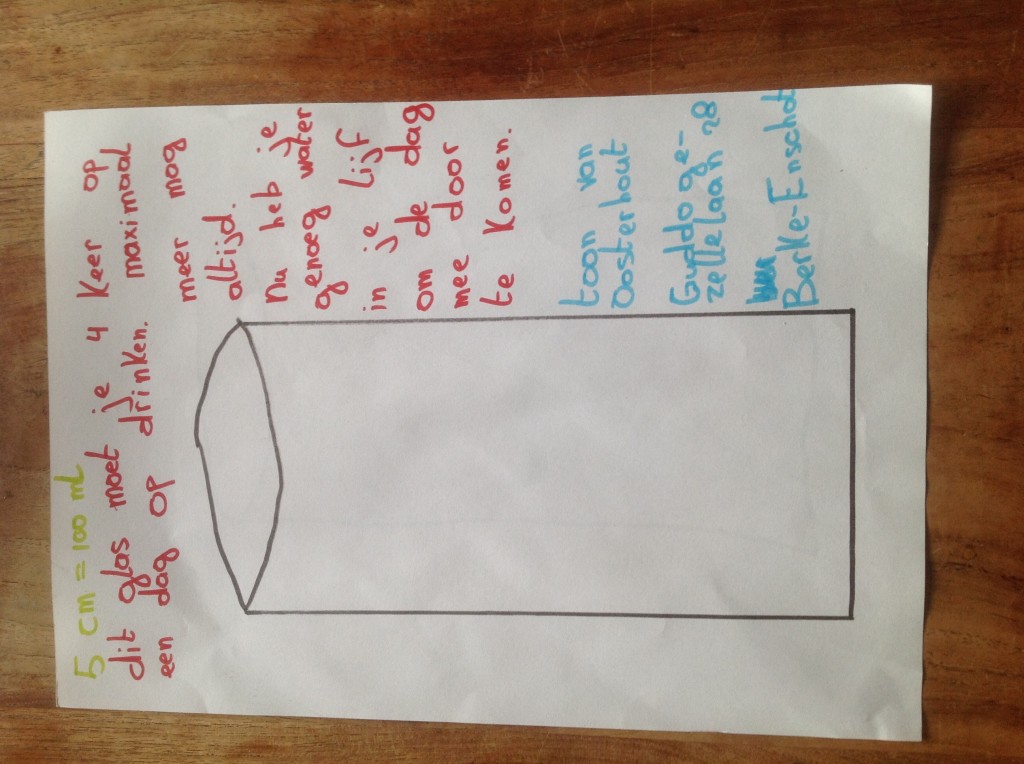 5 cm = 100 ml
dit glas moet je 4 keer op
een dag op drinken. maximaal
meer mag
altijd.
Nu heb je
genoeg water
in je lijf
om de dag
mee door
te komen.
toon van
Oosterhout
Guddo ge-
zellelaan 28
Berke-Enschot